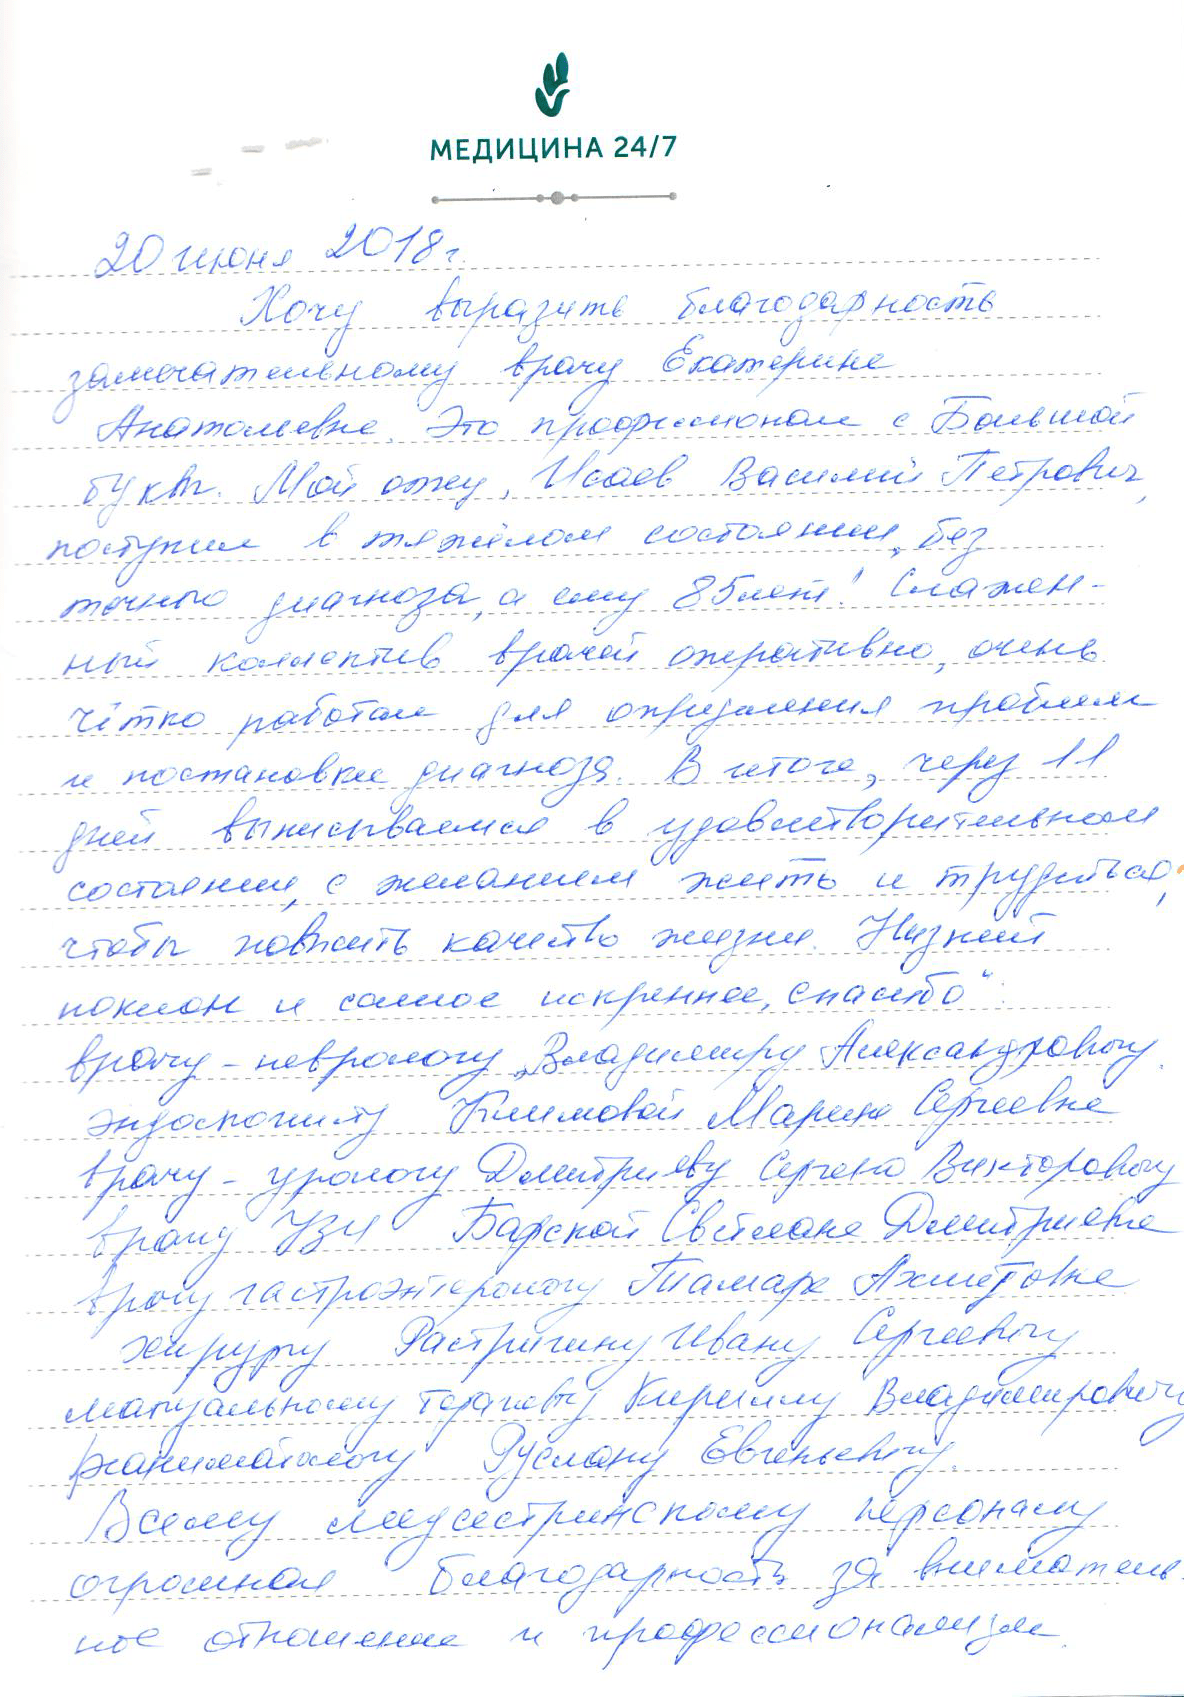 МЕДИЦИНА 24/7
20 июня 2018 г.
Хочу выразить благодарность
замечательному врачу Екатерине
Анатольевне. Это профессионал с Большой
буквы. Мой муж, Исаев Василий Петрович,
поступил в тяжёлом состоянии, без
точного диагноза, а ему 85 лет! Слажен-
ный коллектив врачей оперативно, очень
чётко работал для определения проблем
и постановки диагноза. В итоге, через 11
дней выписываемся в удовлетворительном
состоянии, с желанием жить и трудиться,
чтобы повысить качество жизни. Низкий
поклон и самое искреннее „спасибо“:
врачу-неврологу Владимиру Александровичу.
эндоскописту Климовой Марине Сергеевне
врачу-урологу Дмитриеву Сергею Викторовичу
врачу УЗИ Барской Светлане Дмитриевне
врачу гастроэнтерологу Тамаре Ахметовне
хирургу Растригину Ивану Сергеевичу
мануальному терапевту Кириллу Владимировичу
реаниматологу Руслану Евгеньевичу.
Всему медсестринскому персоналу
огромная благодарность за вниматель-
ное отношение и профессионализм.